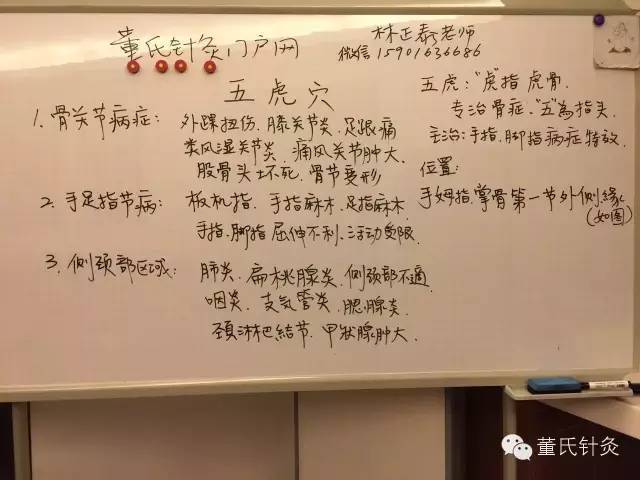 董氏针灸门户网
林正泰老师
微信15901636686
五虎穴
1. 骨关节病症: 外踝扭伤、膝关节炎、足跟痛
类风湿关节炎、痛风关节肿大、
股骨头坏死、骨节变形
2. 手足指节病: 板机指、手指麻木、足指麻木
手指、脚指屈伸不利、活动受限、
3. 侧颈部区域: 肺炎、扁桃腺炎、侧颈部不適
咽炎、支气管炎、腮腺炎、
颈淋巴結节、甲状腺肿大、
五虎:"虎"指虎骨、
专治骨症、"五"為指头、
主治:手指、脚指病症特效
位置:
手姆指、掌骨第一节外侧緣
(如圖)
董氏针灸